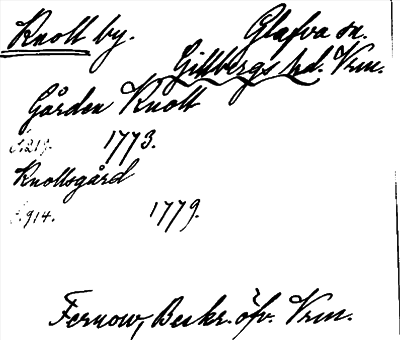 Knoll by. Glafva sn.
Gillbergs hd. Vrm.
Gården Knoll
S.219. 1773.
Knollsgård
S.914. 1779.
Fernow, Beskr. öfv. Vrm.